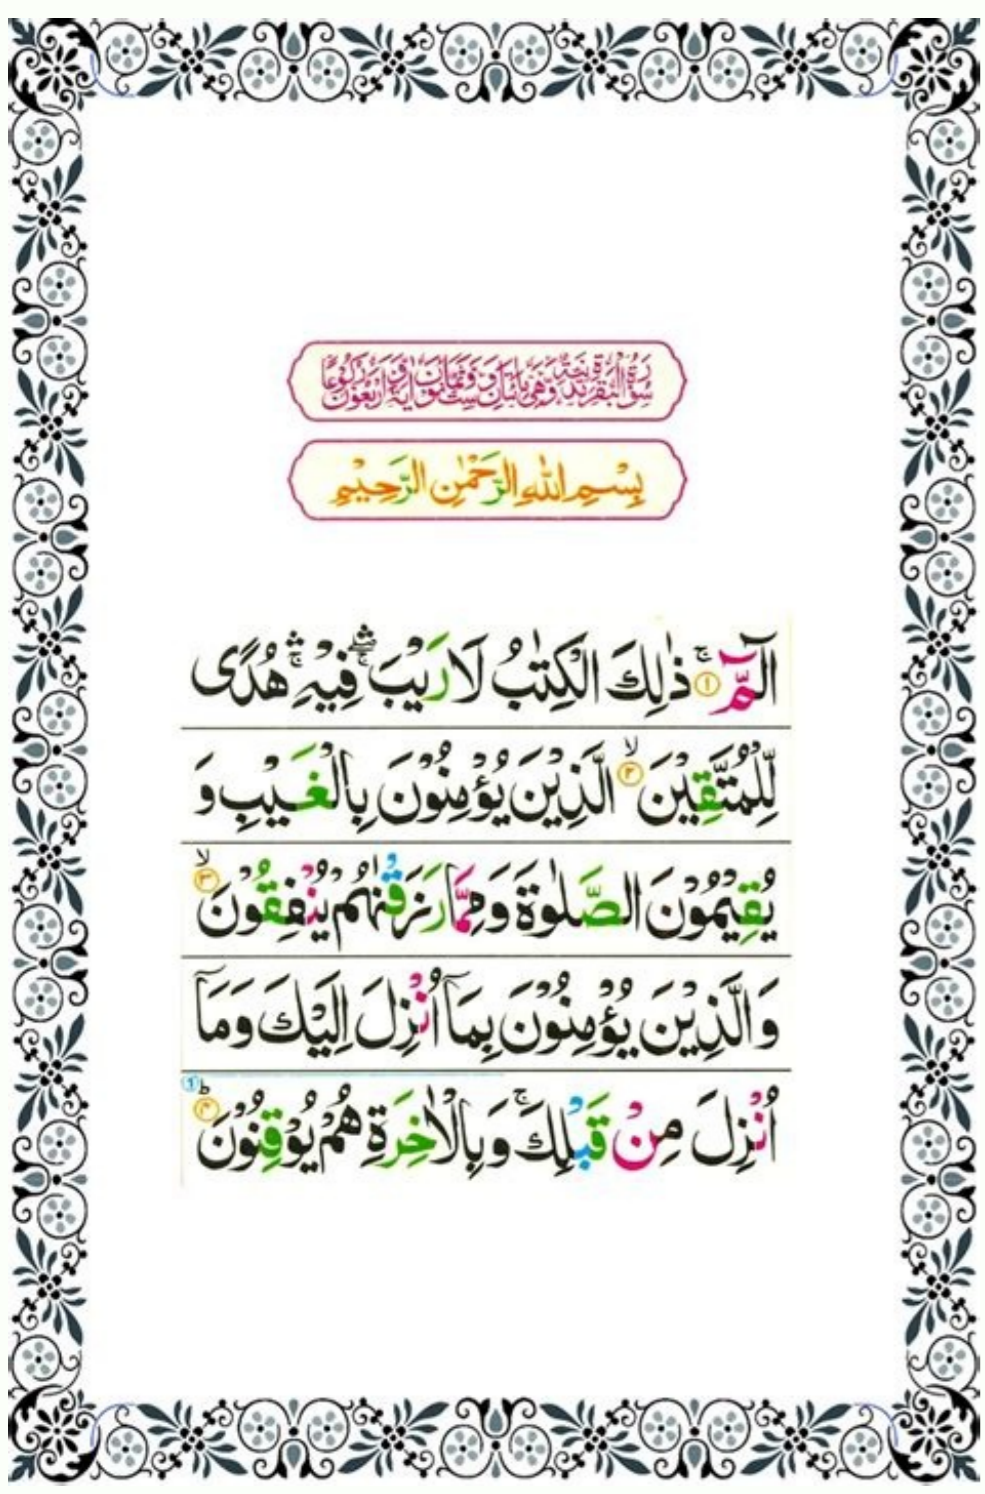 سُوْرَةُ الْبَقَرَةِ مَدَنِيَّةٌ وَّهِيَ مِائَتَانِ وَسِتٌّ وَّثَمَانُوْنَ اٰيَةً وَّاَرْبَعُوْنَ رُكُوْعًا
بِسْمِ اللّٰهِ الرَّحْمٰنِ الرَّحِيْمِ
الٓمّٓ ۚ‏﴿۱﴾ ذٰلِكَ الْكِتٰبُ لَا رَيْبَ ۛۚ فِيْهِ ۛۚ هُدًى
لِّلْمُتَّقِيْنَ ۙ﴿۲﴾ الَّذِيْنَ يُؤْمِنُوْنَ بِالْغَيْبِ وَ
يُقِيْمُوْنَ الصَّلٰوةَ وَمِمَّا رَزَقْنٰهُمْ يُنْفِقُوْنَ ۙ﴿۳﴾
وَالَّذِيْنَ يُؤْمِنُوْنَ بِمَآ اُنْزِلَ اِلَيْكَ وَمَآ
اُنْزِلَ مِنْ قَبْلِكَ ۚ وَبِالْاٰخِرَةِ هُمْ يُوْقِنُوْنَ ؕ﴿۴﴾